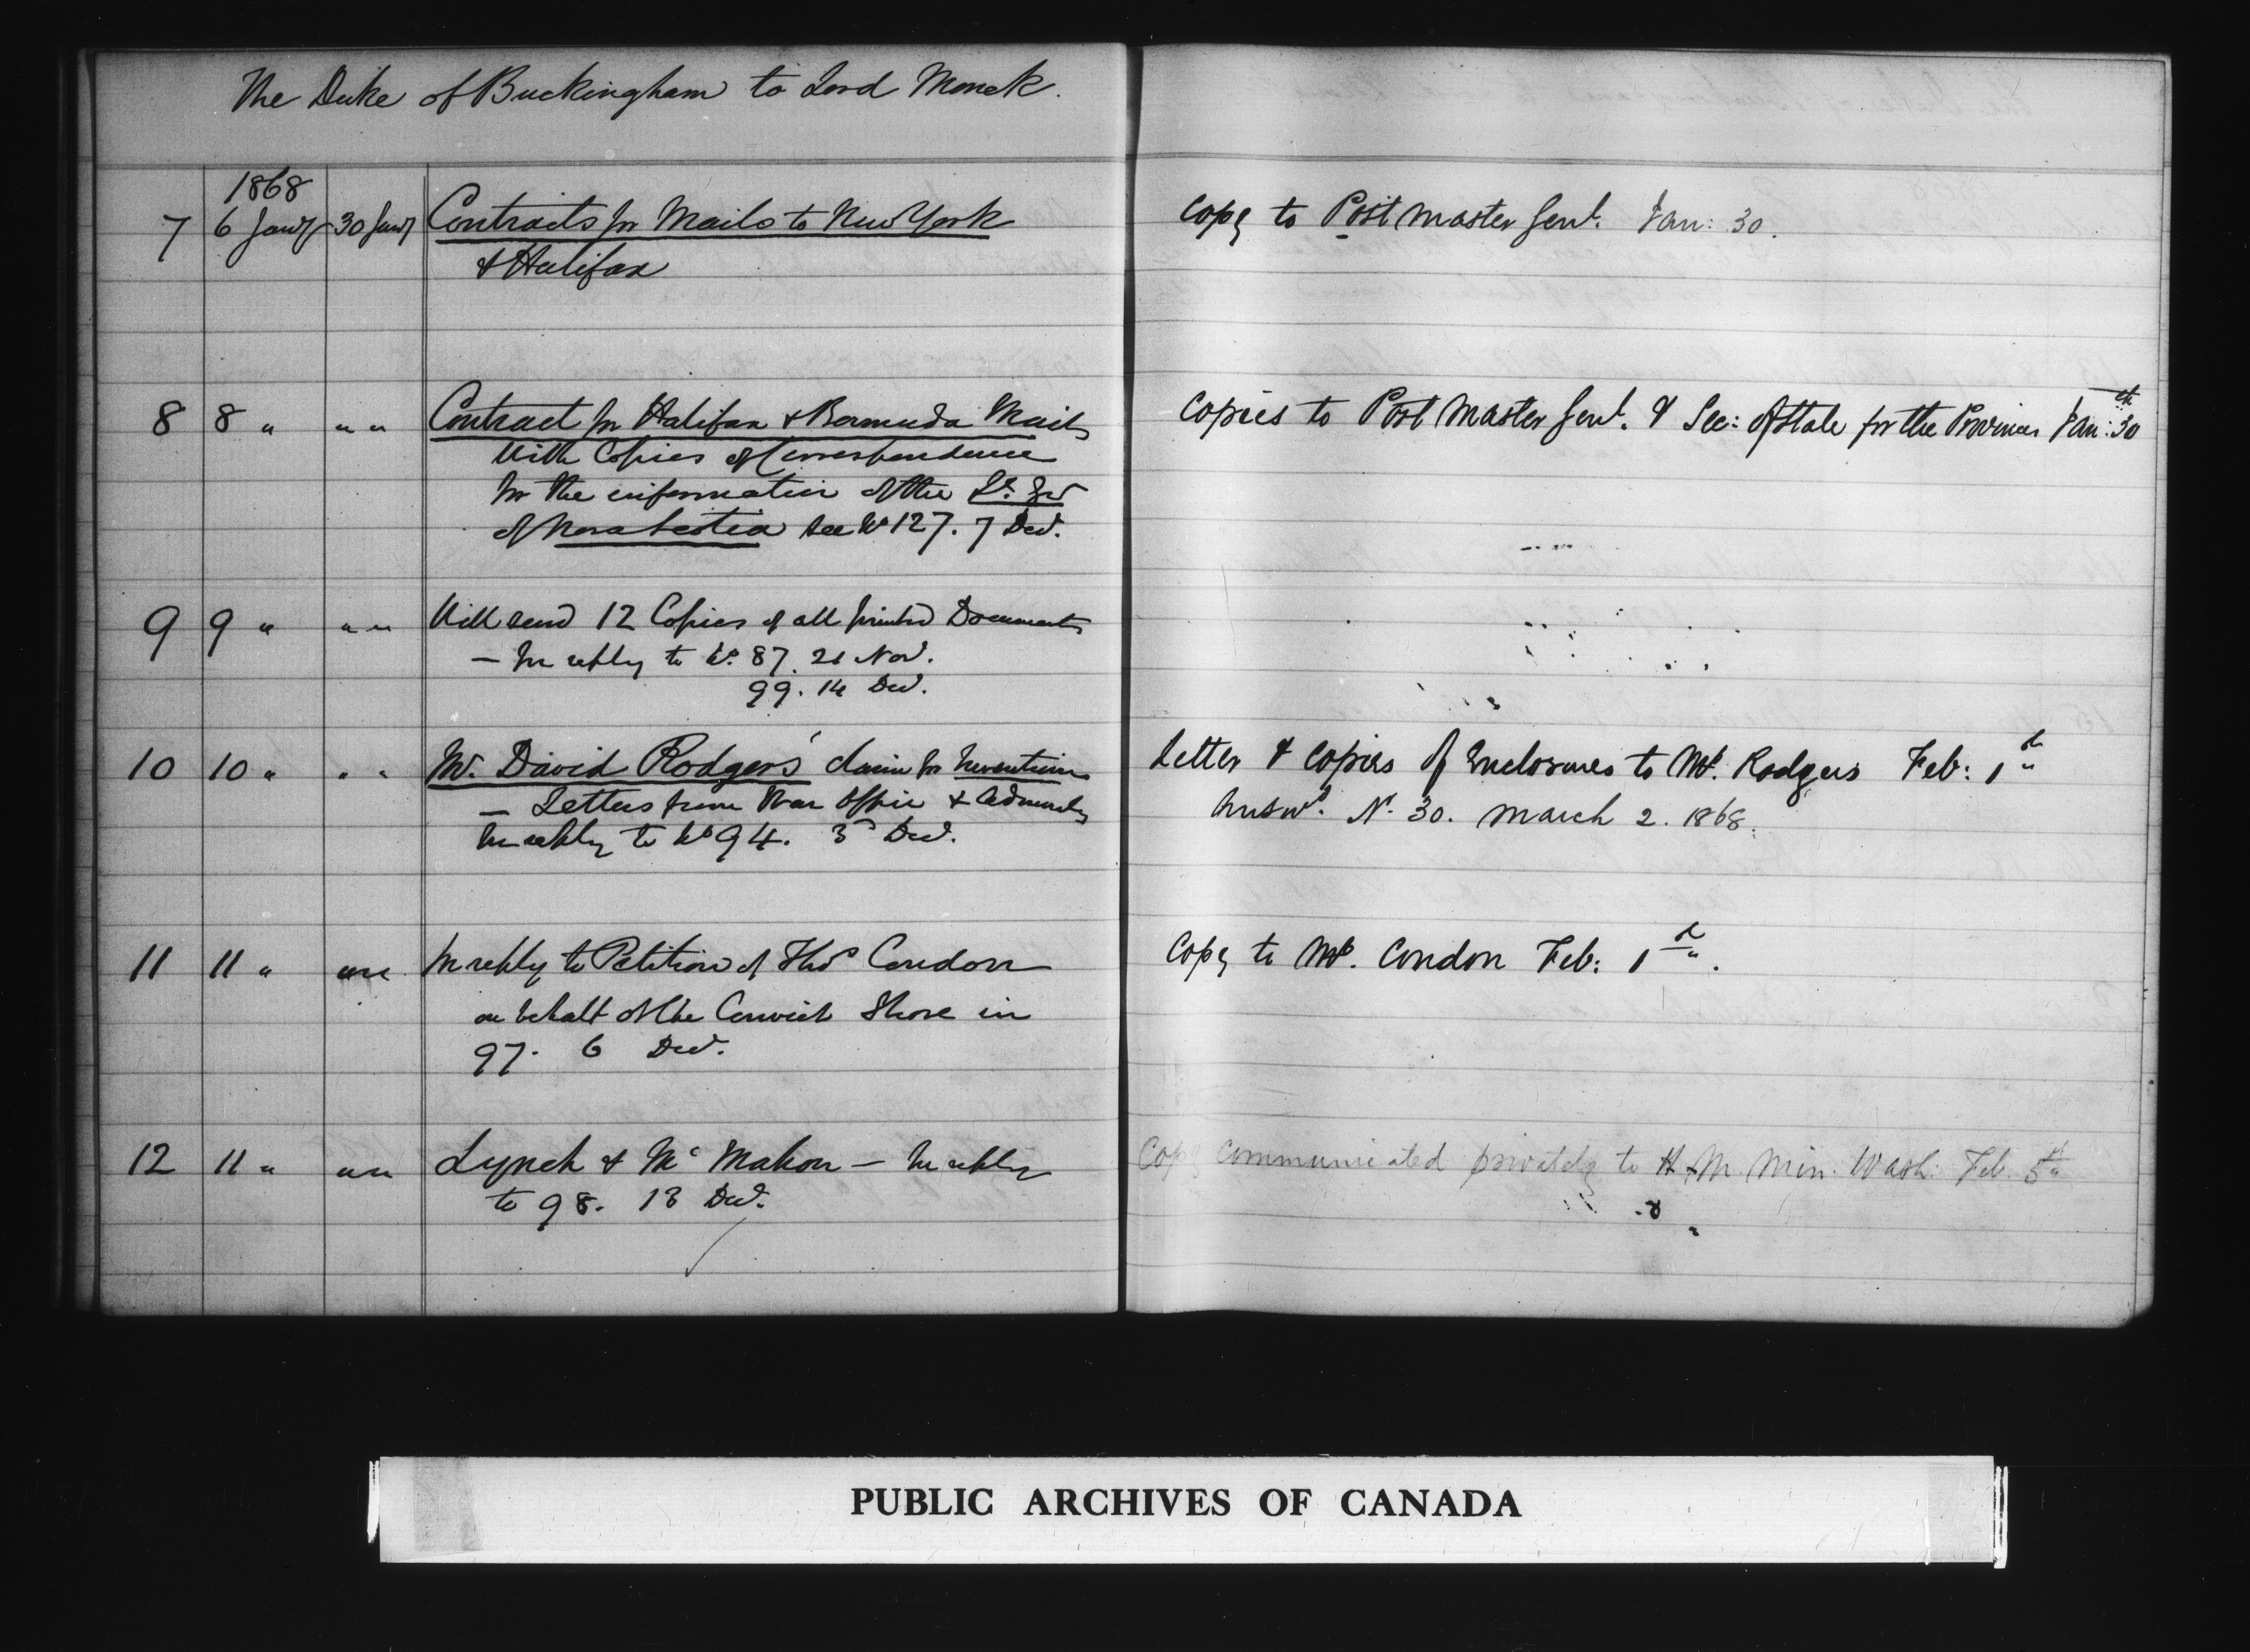 The Duke of Buckingham to Lord Monck.
1868
7 6 Jany 30 Jany Contracts for Mails to New York Copy to Post Master Genl. Jan: 30.
& Halifax
8 8 " " " Contract for Halifax & Bermuda Mails Copies to Post Master Genl. & Sec: of State for the Provinces Jan: 30th
With Copies of Correspondence
for the information of the Lt. Gov
of Nova Scotia see No 127. 7 Decr.
9 9 " " " Will send 12 Copies of all printed Documents
— In reply to No. 87. 21 Nov.
99. 14 Decr.
10 10 " " " Mr. David Rodgers' claim for Inventions Letter & Copies of Enclosures to Mr. Rodgers Feb: 1st
— Letters from War Office & Admiralty Answd. No. 30. March 2. 1868.
In reply to No 94. 3d Decr.
11 11 " " " In reply to Petition of Thos Condon Copy to Mr. Condon Feb: 1st.
on behalf of the Convict Shore in
97. 6 Decr.
12 11 " " " Lynch & Mc Mahon — In reply Copy communicated privately to H. M. Min: Wash: Feb. 5th
to 98. 13 Decr.
PUBLIC ARCHIVES OF CANADA